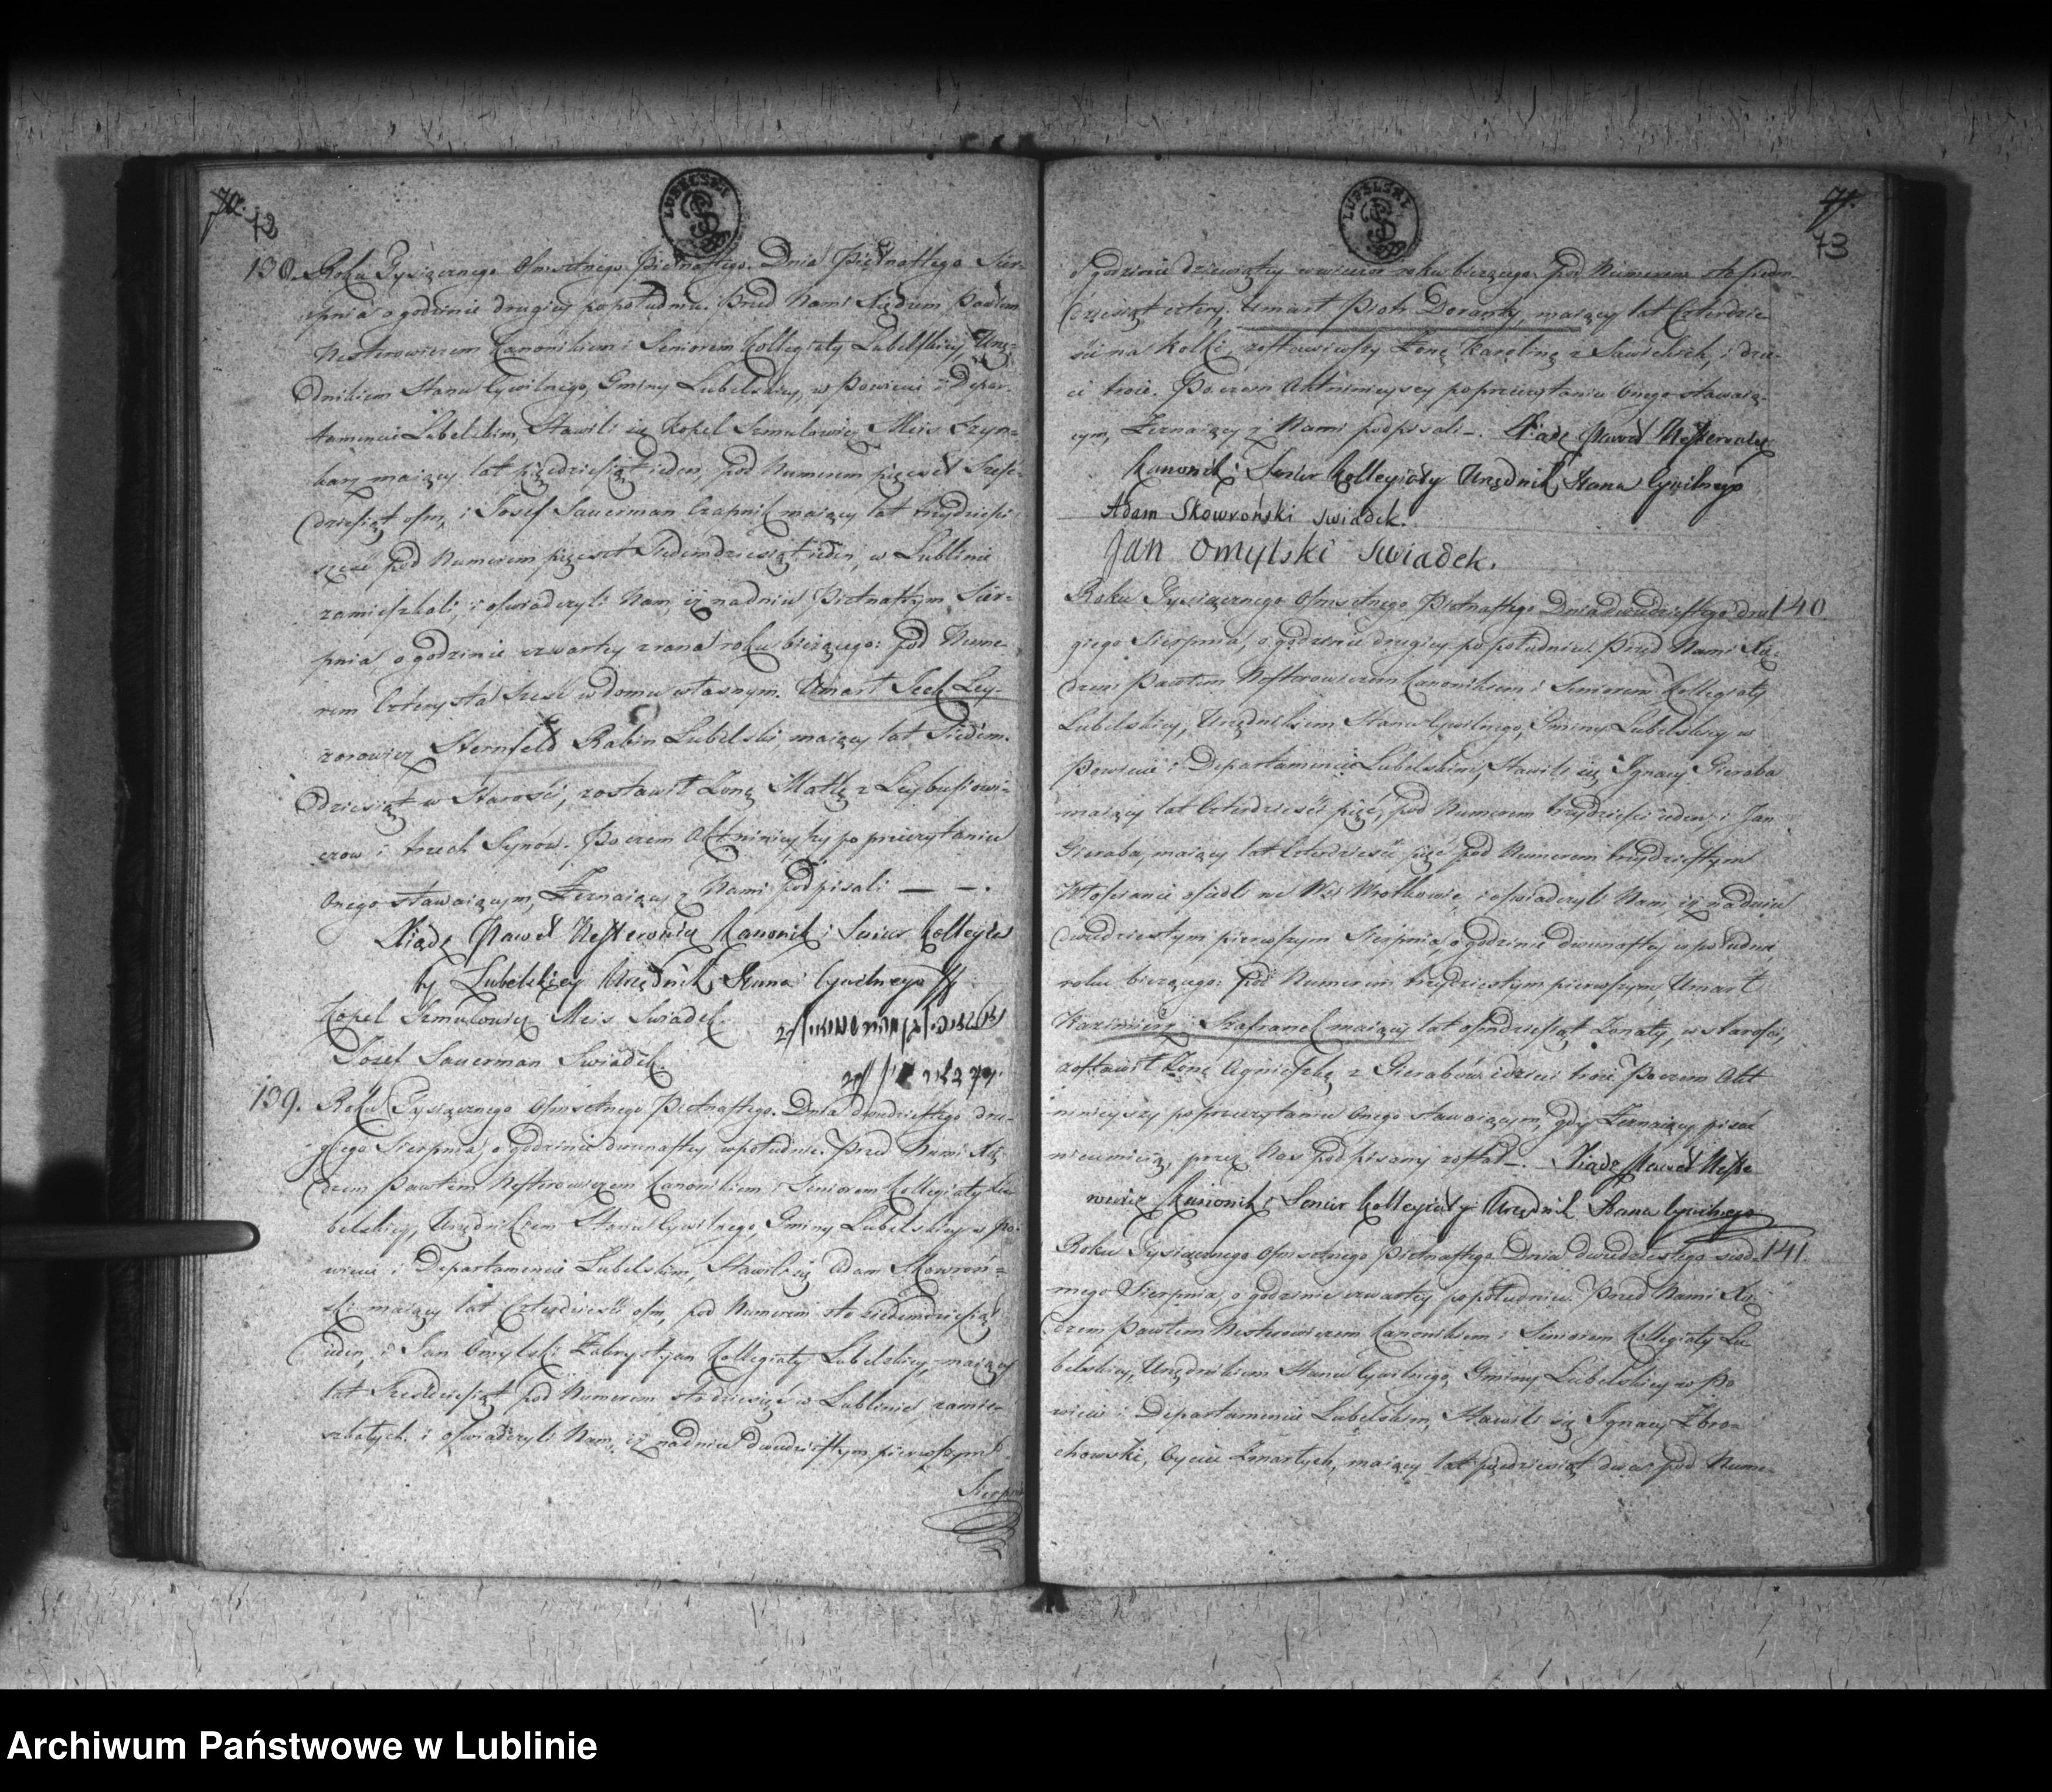 70.
72
LUBELSKI
138. Roku Tysiącznego Osmsetnego Piętnastego. Dnia Piętnastego Sier-
pnia o godzinie drugiey popołudniu. Przed Nami Xiędzem Pawłem
Nesterowiczem Kanonikiem i Seniorem Kollegiaty Lubelskiey, Urzę-
dnikiem Stanu Cywilnego, Gminy Lubelskiey, w Powiecie i Depar-
tamencie Lubelskim, Stawili się Kopel Szmulowicz Meis Szyn-
karz maiący lat pięćdziesiąt ieden, pod Numerem pięćset Sześć-
dziesiąt ośm, i Josef Sauerman Czapnik maiący lat trzydzieści
sześć pod Numerem pięćset Siedmdziesiąt ieden, w Lublinie
zamieszkali; i oświadczyli Nam, iż na dniu Piętnastym Sier-
pnia, o godzinie czwartey z rana roku bieżącego: pod Nume-
rem Czterysta Sześć w domu własnym. Umarł Icek Ley-
zorowicz Sternfeld Rabin Lubelski, maiący lat Siedem-
dziesiąt w Starości, zostawił Żonę Matlę z Leybusiowi-
czow i trzech Synów. Poczem Akt ninieyszy po przeczytaniu
Onego stawaiącym, Zeznaiący z Nami podpisali — — .
Xiądz Paweł Nesterowicz Kanonik i Senior Kollegia
ty Lubelskiey Urzędnik Stanu Cywilnego
Kopel Szmulowicz Meis Swiadek.
Josef Sauerman Swiadek.
139. Roku Tysiącznego Osmsetnego Piętnastego. Dnia dwudziestego dru-
giego Sierpnia, o godzinie dwunastey w południe. Przed Nami Xię-
dzem Pawłem Nesterowiczem Kanonikiem i Seniorem Kollegiaty Lu-
belskiey, Urzędnikiem Stanu Cywilnego, Gminy Lubelskiey w Po-
wiecie i Departamencie Lubelskim, Stawili się Adam Skowroń-
ski maiący lat Czterdzieści ośm, pod Numerem sto siedemdziesiąt
ieden, i Jan Omylski Zakrystyan Kollegiaty Lubelskiey, maiący
lat Sześćdziesiąt pod Numerem sto dziewięć w Lublinie zamie-
szkałych. i oświadczyli Nam, iż na dniu dwudziestym pierwszym
Sierpnia
71.
73
LUBELSKI
o godzinie dziewiątey wwieczor roku bieżącego: pod Numerem sto siedm-
dziesiąt cztery, Umarł Piotr Doranty, maiący lat Czterdzie-
ści na Kolki, zostawiwszy Żonę Karolinę z Sawickich, i dzie-
ci troie. Poczem Akt ninieyszy po przeczytaniu Onego stawaią-
cym, Zeznaiący z Nami podpisali —. Xiądz Paweł Nesterowicz
Kanonik i Senior Kollegiaty Urzędnik Stanu Cywilnego
Adam Skowroński swiadek.
Jan Omylski Swiadek.
Roku Tysiącznego Osmsetnego Piętnastego Dnia dwudziestego dru 140.
giego Sierpnia, o godzinie drugiey po południu. Przed Nami Xię-
dzem Pawłem Nesterowiczem Kanonikiem i Seniorem Kollegiaty
Lubelskiey, Urzędnikiem Stanu Cywilnego, Gminy Lubelskiey w
Powiecie i Departamencie Lubelskim, Stawili się Ignacy Gieraba
maiący lat Czterdzieści pięć, pod Numerem trzydzieści ieden, i Jan
Gieraba, maiący lat Czterdzieści pięć pod Numerem trzydziestym
Włościanie osiedli we Wsi Wrotkowie, i oświadczyli Nam, iż na dniu
dwudziestym pierwszym Sierpnia, o godzinie dwunastey w południe,
roku bieżącego: pod Numerem trzydziestym pierwszym, Umarł
Kazimierz Szafranek maiący lat ośmdziesiąt Żonaty, w starości,
zostawił Żonę Agnieszkę z Gierabów i dzieci troie Poczem Akt
ninieyszy po przeczytaniu Onego stawaiącym, gdy Zeznaiący pisać
nieumieią, przez Nas podpisany został —. Xiądz Paweł Neste
rowicz Kanonik i Senior Kollegiaty Urzędnik Stanu Cywilnego
Roku Tysiącznego Osmsetnego Piętnastego Dnia dwudziestego siod- 141.
mego Sierpnia, o godzinie czwartey po południu. Przed Nami Xię-
dzem Pawłem Nesterowiczem Kanonikiem i Seniorem Kollegiaty Lu-
belskiey, Urzędnikiem Stanu Cywilnego, Gminy Lubelskiey w Po
wiecie i Departamencie Lubelskim, Stawili się Ignacy Zbro-
chowski, Oyciec Zmarłych, maiący lat pięćdziesiąt dwa pod Nume-
Archiwum Państwowe w Lublinie